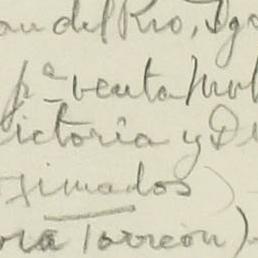 del Rio, Igo
pª venta Mol
ictoria y D
ximados)
ora Torreón)